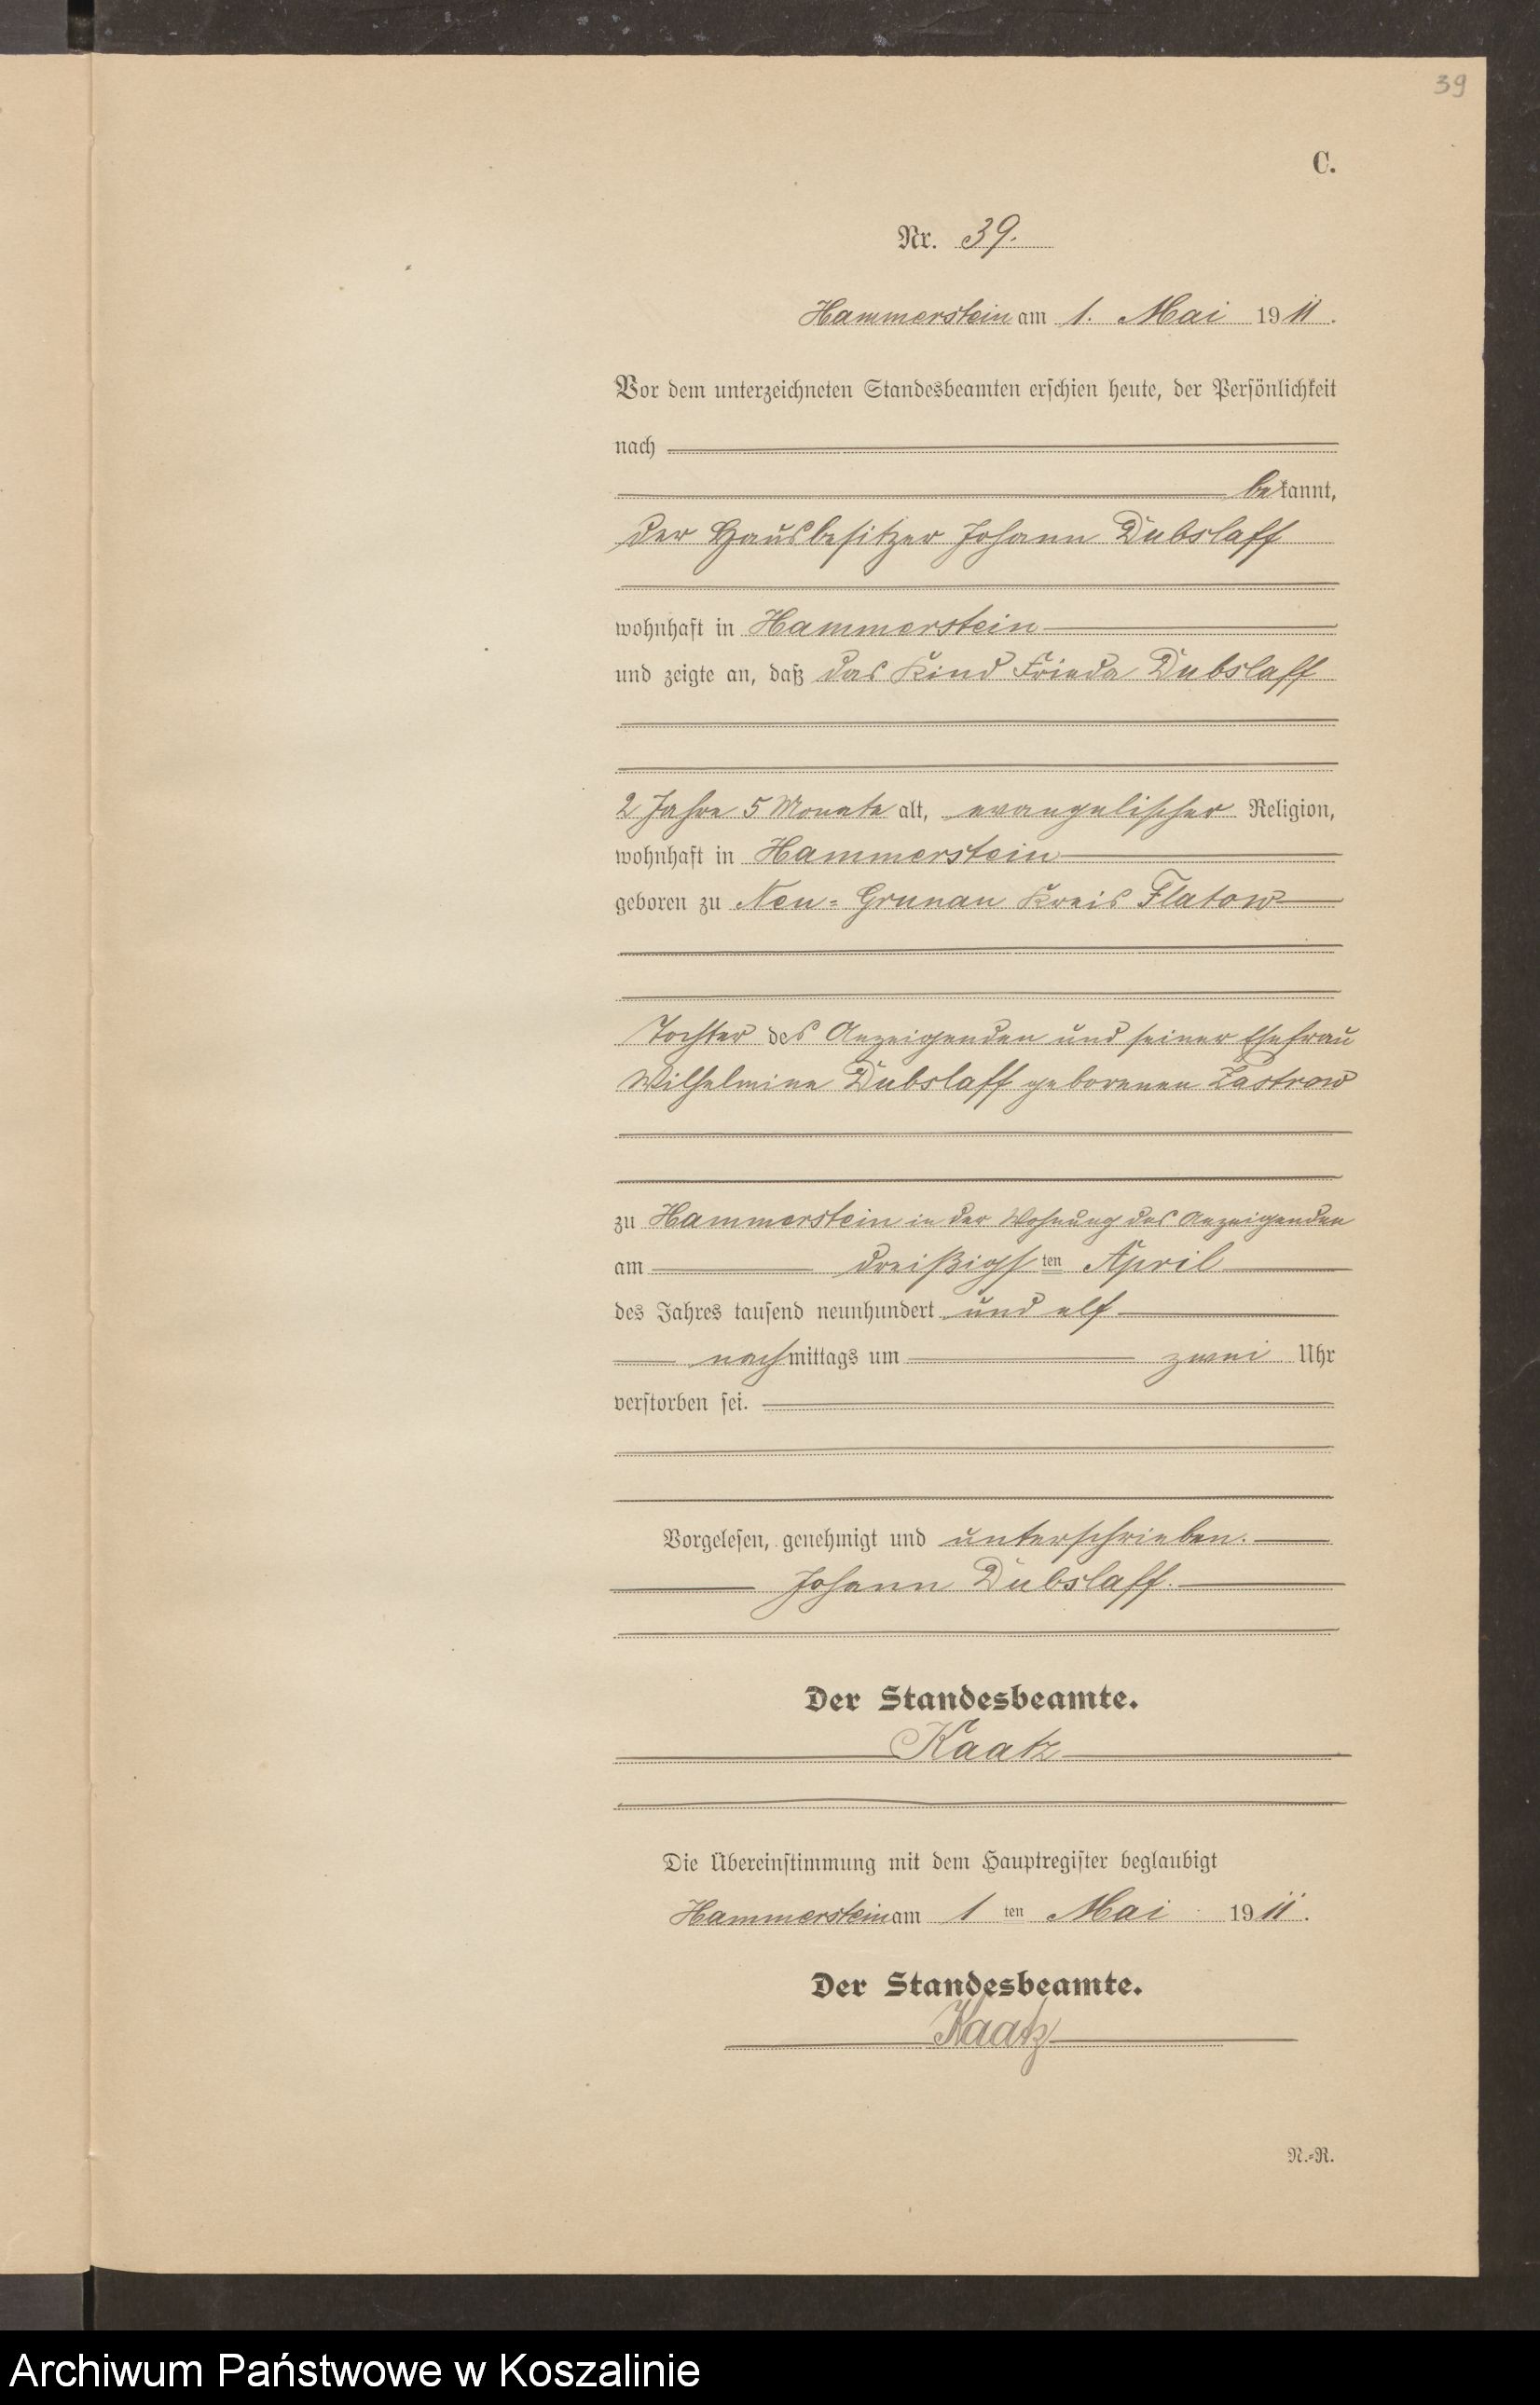 39
C.
Nr. 39.
Hammerstein am 1. Mai 1911.
Vor dem unterzeichneten Standesbeamten erschien heute, der Persönlichkeit
nach
bekannt,
der Hausbesitzer Johann Dubslaff
wohnhaft in Hammerstein
und zeigte an, daß das Kind Frieda Dubslaff
2 Jahre 5 Monate alt, evangelischer Religion,
wohnhaft in Hammerstein
geboren zu Neu-Grunau Kreis Flatow
Tochter des Anzeigenden und seiner Ehefrau
Wilhelmine Dubslaff geborenen Zastrow
zu Hammerstein in der Wohnung des Anzeigenden
am dreißigsten April
des Jahres tausend neunhundert und elf
nachmittags um zwei Uhr
verstorben sei.
Vorgelesen, genehmigt und unterschrieben.
Johann Dubslaff.
Der Standesbeamte.
Kaatz
Die Übereinstimmung mit dem Hauptregister beglaubigt
Hammerstein am 1ten Mai 1911.
Der Standesbeamte.
Kaatz
N.-R.
Archiwum Państwowe w Koszalinie